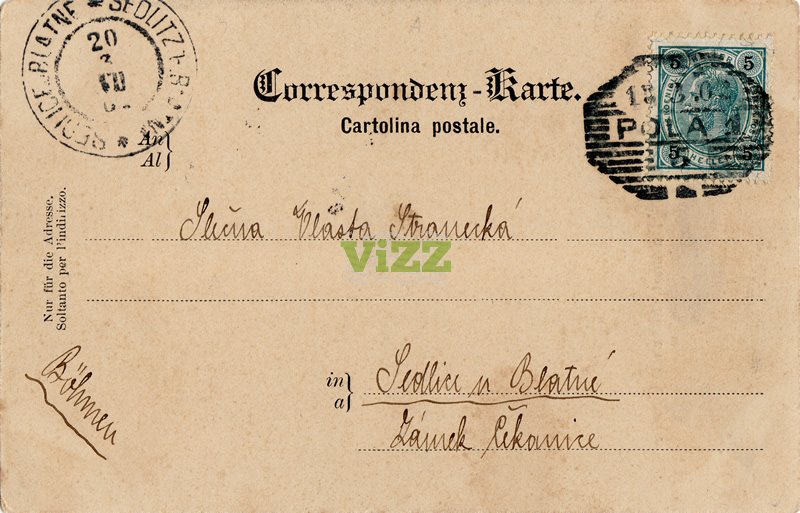 SEDLITZ-BLATNA * SEDLICE-BLATNÉ *
20
VII
Correspondenz-Karte.
Cartolina postale.
5 5
POLA 1
5 5
HELLER
An
Al
Slečna Vlasta Stranecká
ViZZ
Nur für die Adresse.
Soltanto per l'indirizzo.
in
a
Sedlice u Blatné
Zámek Čekanice
Böhmen